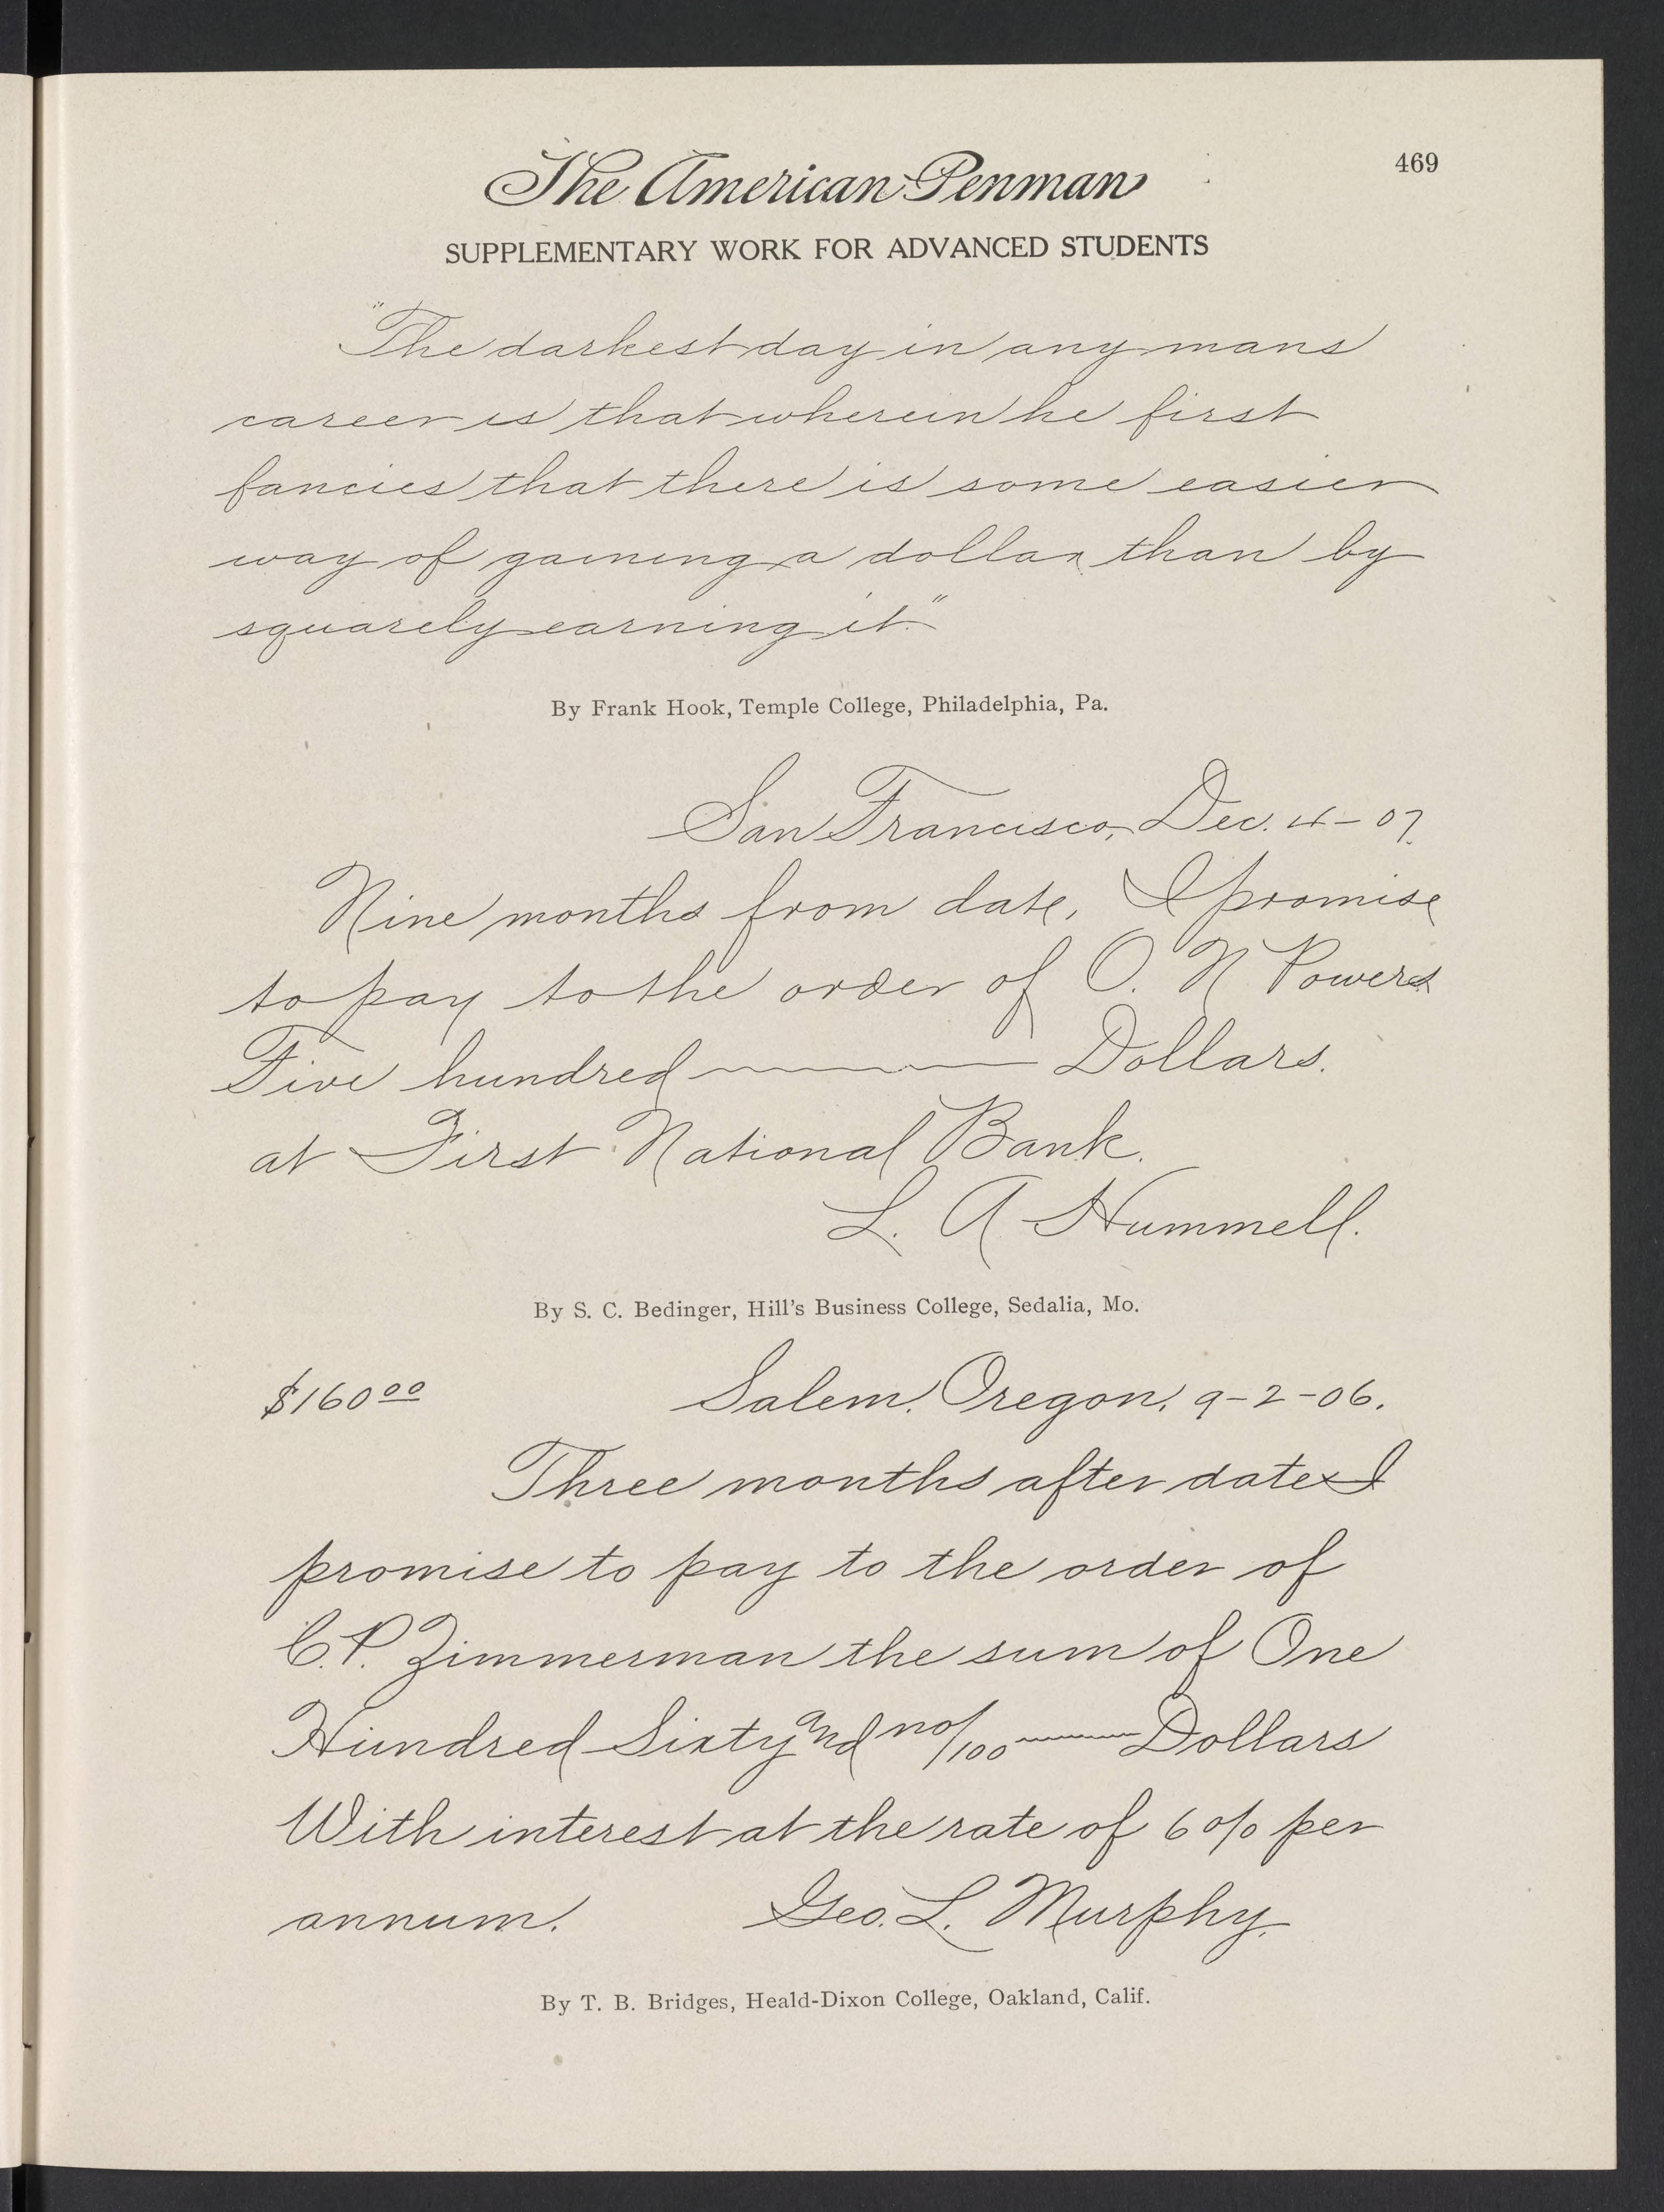 The American Penman
469
SUPPLEMENTARY WORK FOR ADVANCED STUDENTS
"The darkest day in any mans
career is that wherein he first
fancies that there is some easier
way of gaining a dollar than by
squarely earning it."
By Frank Hook, Temple College, Philadelphia, Pa.
San Francisco, Dec. 4-07.
Nine months from date, I promise
to pay to the order of O. N Powers
Five hundred Dollars.
at First National Bank.
L. A Hummell.
By S. C. Bedinger, Hill's Business College, Sedalia, Mo.
$160 00 Salem, Oregon, 9-2-06.
Three months after date I
promise to pay to the order of
C.P. Zimmerman the sum of One
Hundred Sixty and no/100 Dollars
With interest at the rate of 6% per
annum. Geo. L. Murphy.
By T. B. Bridges, Heald-Dixon College, Oakland, Calif.